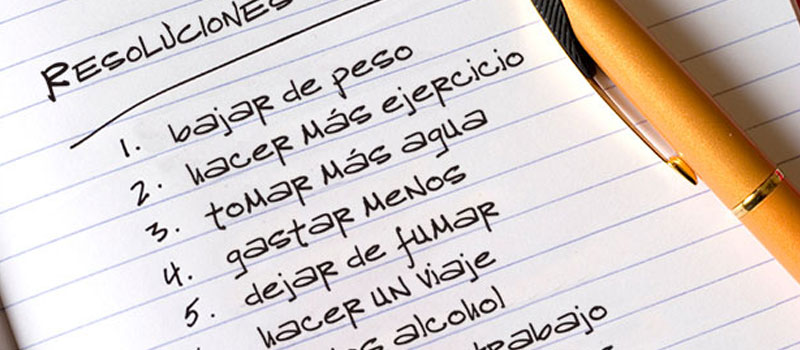 RESOLUCIONES
1. bajar de peso
2. hacer más ejercicio
3. tomar más agua
4. gastar menos
5. dejar de fumar
hacer un viaje
alcohol
trabajo